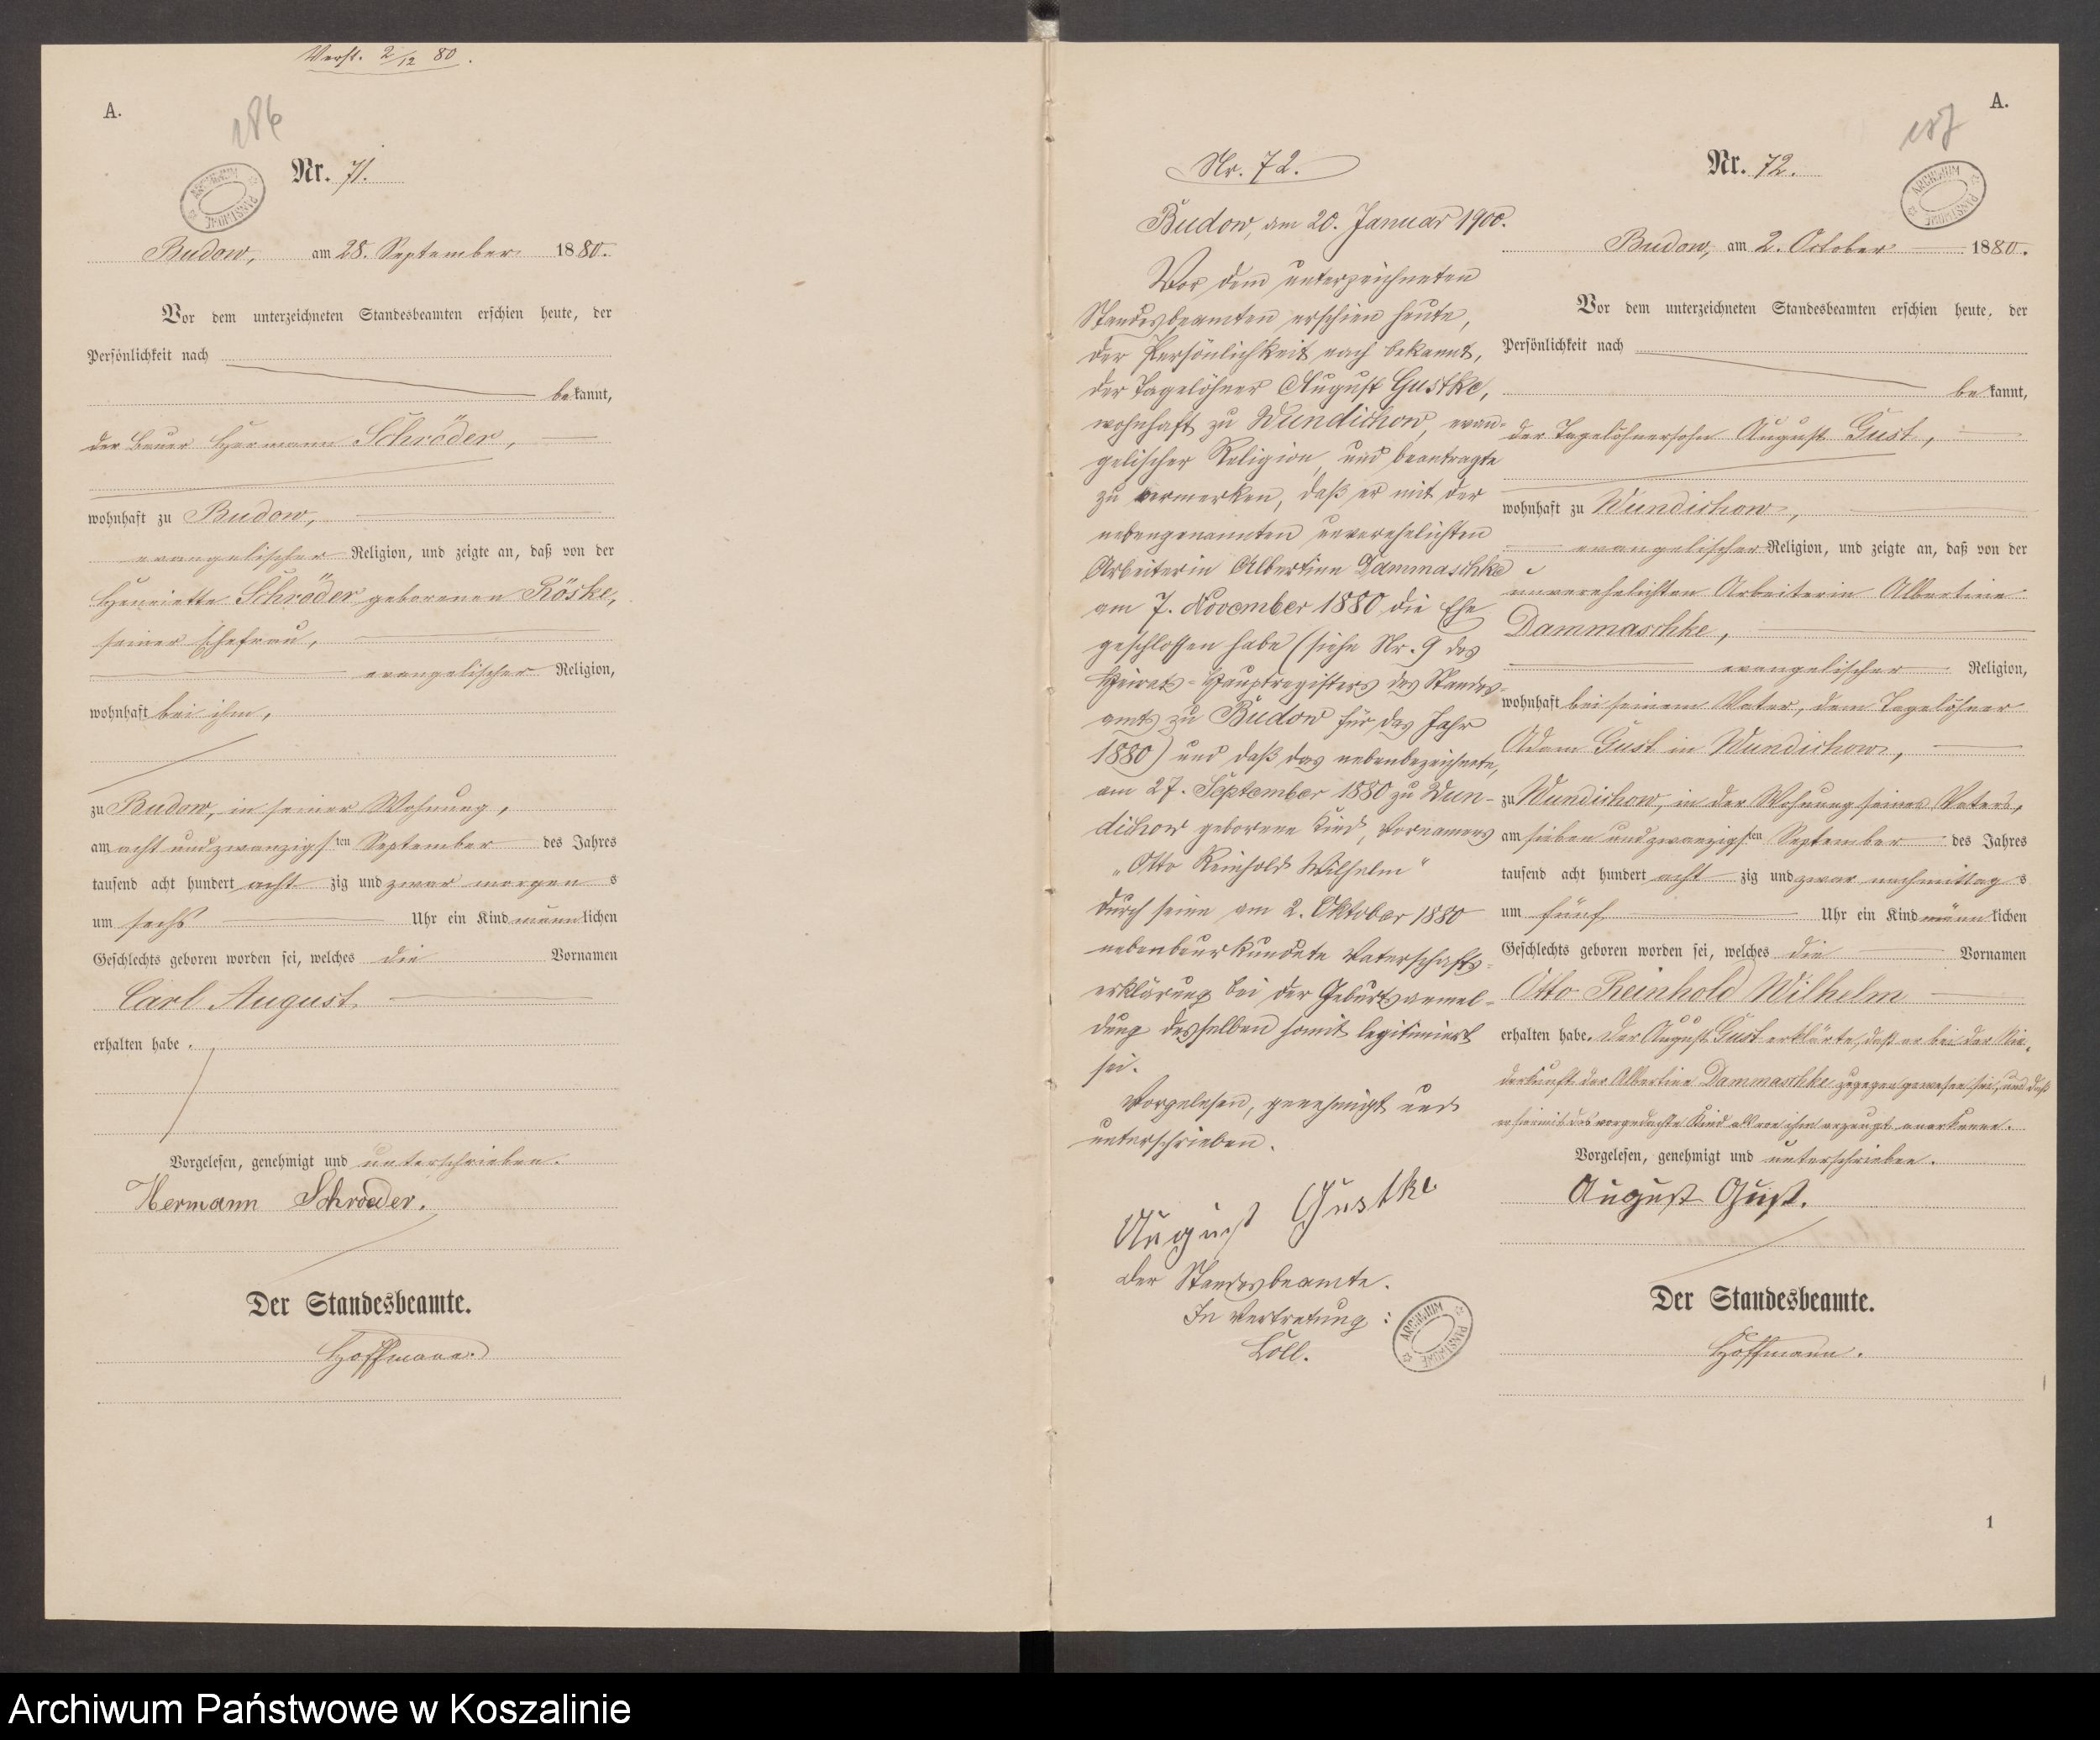 Verst. 2/12 80.
A.
186
Nr. 71.
ARCHIWUM PAŃSTWOWE
Budow, am 28. September 1880.
Vor dem unterzeichneten Standesbeamten erschien heute, der
Persönlichkeit nach
bekannt,
der Bauer Hermann Schröder,
wohnhaft zu Budow,
evangelischer Religion, und zeigte an, daß von der
Henriette Schröder geborenen Röske,
seiner Ehefrau,
evangelischer Religion,
wohnhaft bei ihm,
zu Budow, in seiner Wohnung,
am acht und zwanzigsten September des Jahres
tausend acht hundert acht zig und zwar morgens
um sechs Uhr ein Kind männlichen
Geschlechts geboren worden sei, welches die Vornamen
Carl August
erhalten habe.
Vorgelesen, genehmigt und unterschrieben.
Hermann Schroeder.
Der Standesbeamte.
Hoffmann.
Nr. 72.
Budow, am 20. Januar 1900.
Vor dem unterzeichneten
Standesbeamten erschien heute,
der Persönlichkeit nach bekannt,
der Tagelöhner August Gustke,
wohnhaft zu Wundichow, evan-
gelischer Religion, und beantragte
zu vermerken, daß er mit der
nebengenannten unverehelichten
Arbeiterin Albertine Dammaschke
am 7. November 1880 die Ehe
geschlossen habe (siehe Nr. 9 des
Heirats-Hauptregisters des Standes-
amts zu Budow für das Jahr
1880) und daß das nebenbezeichnete,
am 27. September 1880 zu Wun-
dichow geborene Kind, Vornamens
„Otto Reinhold Wilhelm“
durch seine am 2. Oktober 1880
nebenbeurkundete Vaterschafts-
erklärung bei der Geburtsanmel-
dung desselben somit legitimiert
sei.
Vorgelesen, genehmigt und
unterschrieben.
August Gustke
Der Standesbeamte.
In Vertretung:
Löll.
ARCHIWUM PAŃSTWOWE
A.
187
Nr. 72.
ARCHIWUM PAŃSTWOWE
Budow, am 2. October 1880.
Vor dem unterzeichneten Standesbeamten erschien heute, der
Persönlichkeit nach
bekannt,
der Tagelöhnersohn August Gust,
wohnhaft zu Wundichow,
evangelischer Religion, und zeigte an, daß von der
unverehelichten Arbeiterin Albertine
Dammaschke,
evangelischer Religion,
wohnhaft bei seinem Vater, dem Tagelöhner
Adam Gust in Wundichow,
zu Wundichow, in der Wohnung seines Vaters,
am sieben und zwanzigsten September des Jahres
tausend acht hundert acht zig und zwar nachmittags
um fünf Uhr ein Kind männlichen
Geschlechts geboren worden sei, welches die Vornamen
Otto Reinhold Wilhelm
erhalten habe. Der August Gust erklärte, daß er bei der Nie-
derkunft der Albertine Dammaschke zugegen gewesen sei, und daß
er hiermit das vorgedachte Kind als von ihm erzeugt anerkenne.
Vorgelesen, genehmigt und unterschrieben.
August Gust.
Der Standesbeamte.
Hoffmann.
1
Archiwum Państwowe w Koszalinie